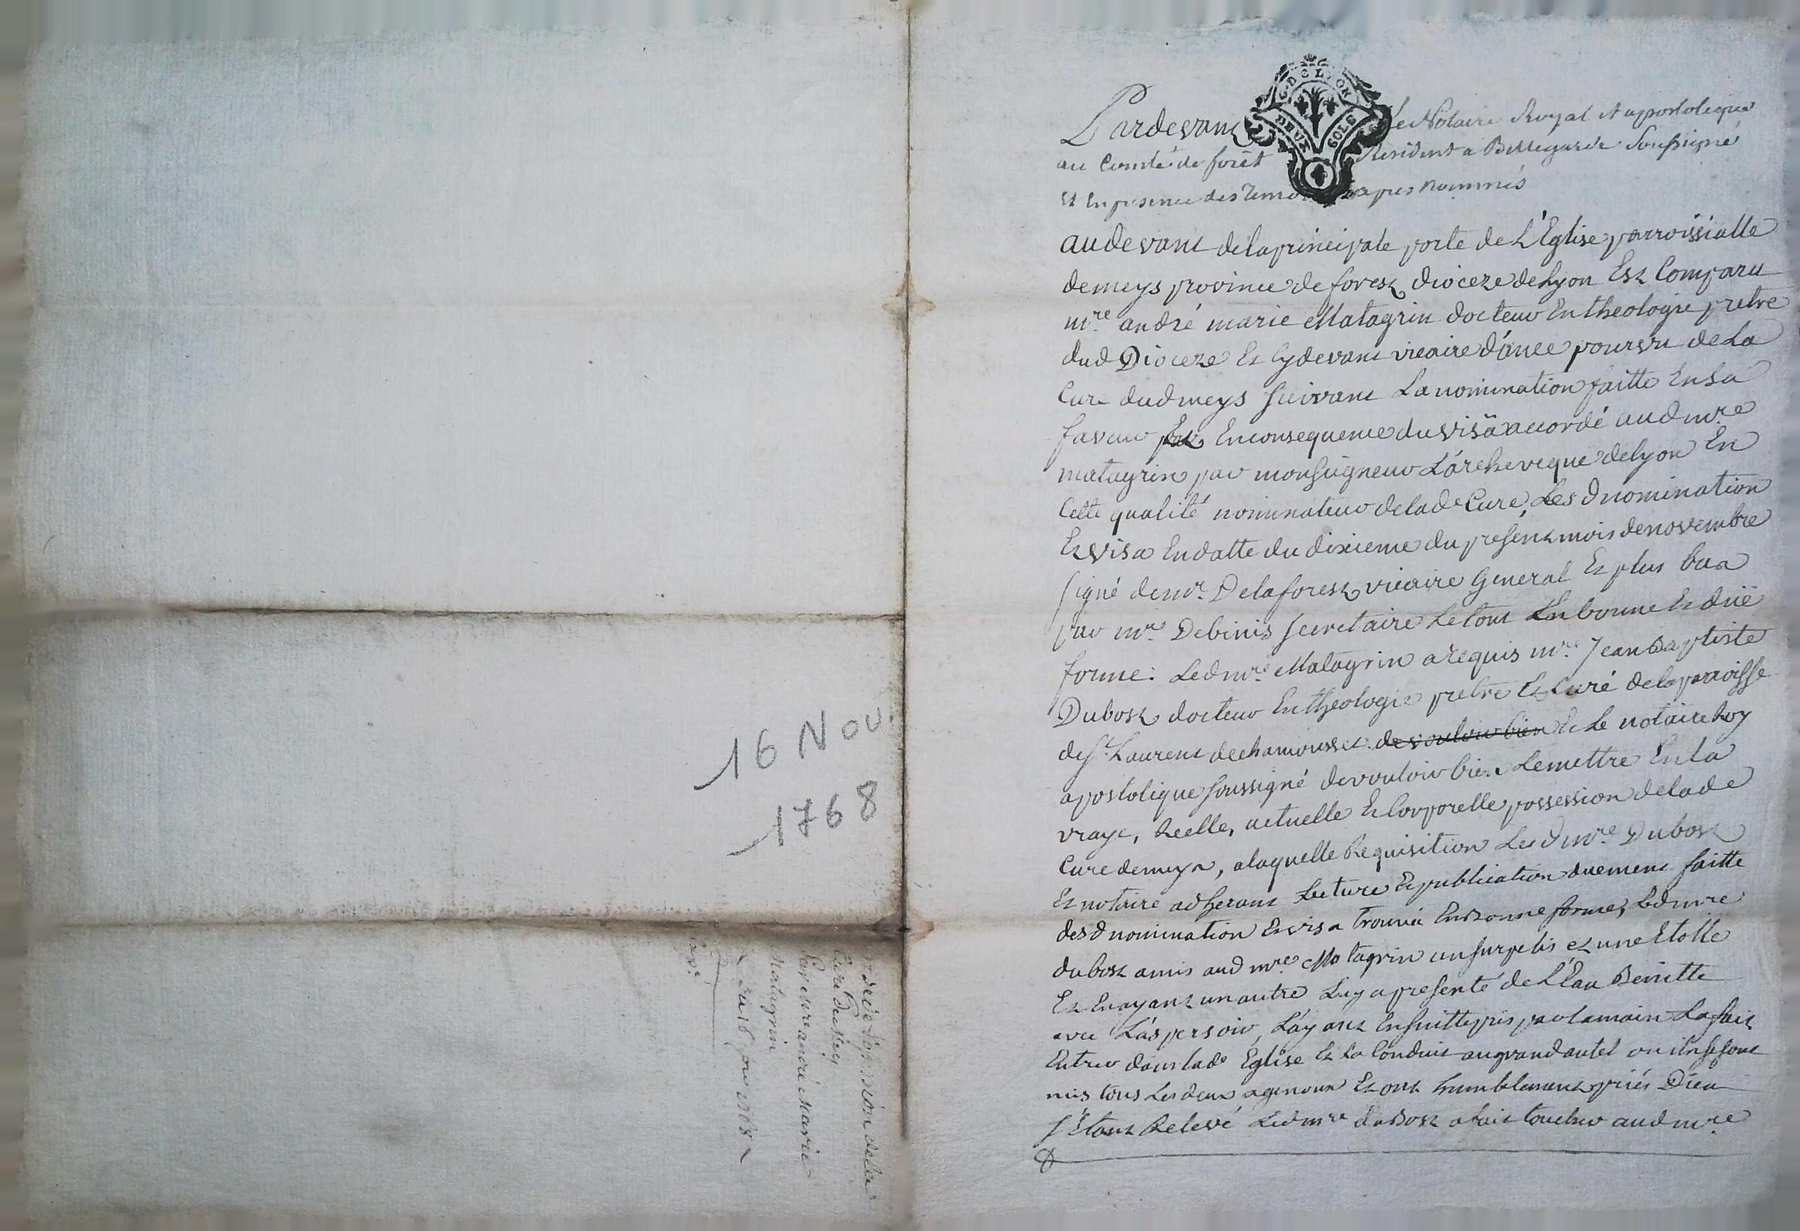 16 Nov.
1768
prise de possession de la
Cure de Meys
par messire andré Marie
Matagrin
du 16 9bre 1768
G. DE LYON
DEUX SOLS
Pardevant Le Notaire Royal et apostolique
au Comté de forêt Resident a Bellegarde Soussigné
Et En presence des Temoins cy apres nommés
au devant de la principale porte de L'Eglise parroissialle
de meys province de forest dioceze de Lyon Est Comparu
mre. andré marie Matagrin docteur En theologie pretre
dud Dioceze Et Cy devant vicaire d'ance pourvu de La
Cure dud meys suivant La nomination faitte En sa
faveur Et En consequence du visa accordé aud mre
matagrin par monseigneur L'archeveque de Lyon En
Cette qualité nominateur de lade Cure, Les d nomination
Et visa En datte du dixieme du present mois de novembre
signé de mr. Delaforest vicaire General Et plus bas
par mre Debinis secretaire Le tout En bonne Et duë
forme: Led mre Matagrin a requis mre Jean Baptiste
Dubost docteur En theologie pretre Et Curé de la paroisse
de st Laurent de chamousset de vouloir bien Et Le notaire Roy
apostolique soussigné de vouloir bien Le mettre En La
vraye, Reelle, actuelle Et Corporelle possession de lade
Cure de meys, a laquelle Requisition Led mre Dubost
Et notaire adherant Lecture Et publication duement faitte
desd nomination Et visa trouvée En bonne forme, Led mre
dubost a mis aud mre Matagrin un surpelis et une Etolle
Et En ayant un autre Luy a presenté de L'Eau Benitte
avec L'aspersoir, L'ayant En suitte pris par la main La fait
Entrer dans lade Eglise Et La Conduit au grand autel ou ils se sont
mis tous Les deux a genoux Et ont humblement priés Dieu
s'Etant Relevé Led mre dubost a fait toucher aud mre